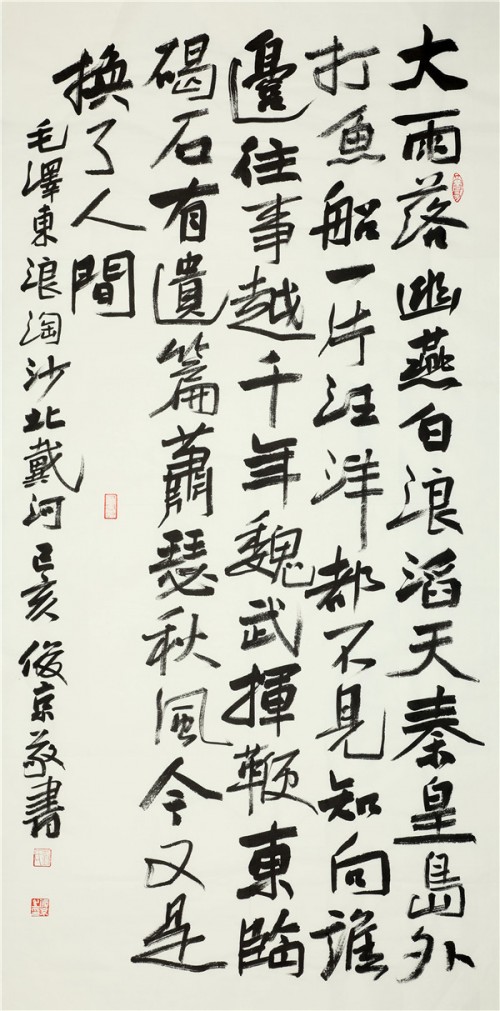 大雨落幽燕白浪滔天秦皇島外
打魚船一片汪洋都不見知向誰
邊往事越千年魏武揮鞭東臨
碣石有遺篇蕭瑟秋風今又是
換了人間
毛澤東浪淘沙北戴河 己亥 俊京敬書